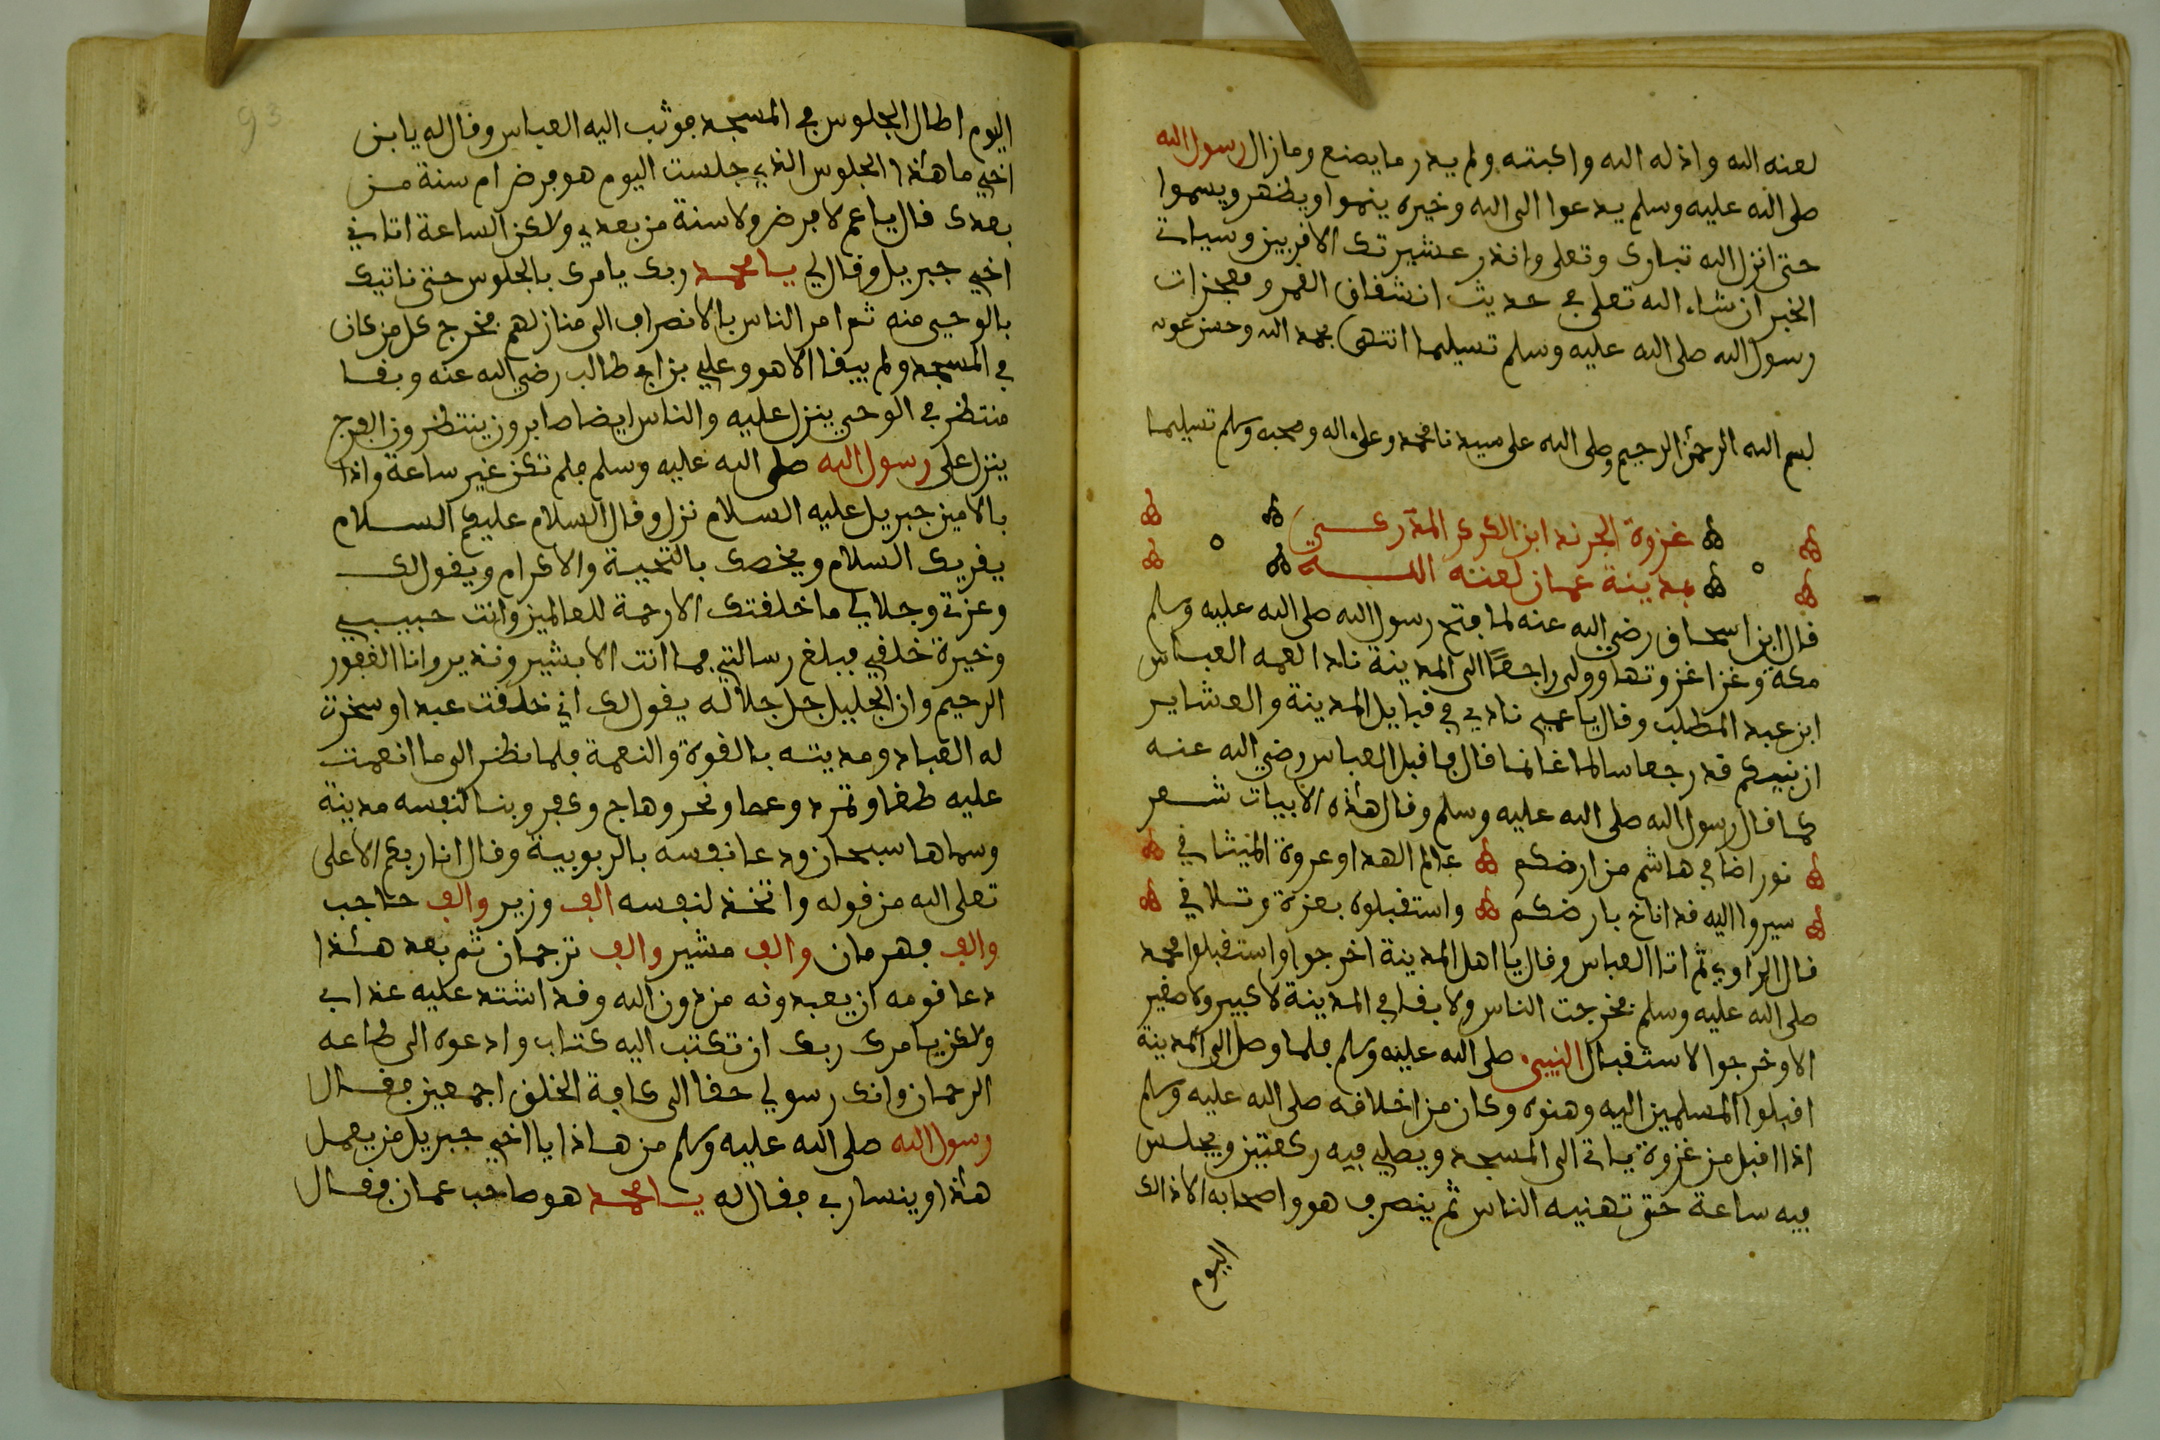 لعنه الله واذله الله واكبته ولم يدر ما يصنع ومازال رسول الله
صلى الله عليه وسلم يدعوا الى الله وخيره ينموا ويظهر ويسموا
حتى انزل الله تبارك وتعلى وانذر عشيرتك الاقربين وسياتي
الخبر ان شاء الله تعلى في حديث انشقاق القمر ومعجزات
رسول الله صلى الله عليه وسلم تسليما انتهى بحمد الله وحسن عونه
بسم الله الرحمن الرحيم وصلى الله على سيدنا محمد وعلى اله وصحبه وسلم تسليما
غزوة الجرند ابن الكركر
بمدينة عمان لعنه الله
قال ابن اسحاق رضي الله عنه لما فتح رسول الله صلى الله عليه وسلم
مكة وغزا غزوتها وولى راجعًا الى المدينة نادا لعمه العباس
ابن عبد المطلب وقال يا عمي نادي في قبايل المدينة والعشاير
ان نبيكم قد رجع سالما غانما قال فاقبل العباس رضي الله عنه
كما قال رسول الله صلى الله عليه وسلم وقال هذه الابيات شعر
نور اضا في هاشم من ارضكم عالم الهدا وعروة الميثاق
سيروا اليه قد اناخ بارضكم واستقبلوه بعزة وتلاقي
قال الراوي ثم اتا العباس وقال يا اهل المدينة اخرجوا واستقبلوا محمد
صلى الله عليه وسلم فخرجت الناس ولا بقا في المدينة لا كبير ولا صغير
الا وخرجوا لاستقبال النبي صلى الله عليه وسلم فلما وصل الى المدينة
اقبلوا المسلمين اليه وهنوه وكان من اخلاقه صلى الله عليه وسلم
اذا اقبل من غزوة ياتي الى المسجد ويصلي فيه ركعتين ويجلس
فيه ساعة حتى تهنيه الناس ثم ينصرف هو واصحابه الا ذالك
اليوم
اليوم اطال الجلوس في المسجد فوثب اليه العباس وقال له يابن
اخي ما هذا الجلوس الذي جلست اليوم هو فرض ام سنة من
بعدك قال يا عم لا فرض ولا سنة من بعدي ولاكن الساعة اتاني
اخي جبريل وقال لي يا محمد ربك يامرك بالجلوس حتى ناتيك
بالوحي منه ثم امر الناس بالانصراف الى منازلهم فخرج كل من كان
في المسجد ولم يبقا الا هو وعلي بن ابي طالب رضي الله عنه وبقا
منتظر في الوحي ينزل عليه والناس ايضا صابرون ينتظرون الفرج
ينزل على رسول الله صلى الله عليه وسلم فلم تكن غير ساعة واذا
بالامين جبريل عليه السلام نزل وقال السلام عليكم السلام
يقريك السلام ويخصك بالتحية والاكرام ويقول لك
وعزتي وجلالي ما خلقتك الا رحمة للعالمين وانت حبيبي
وخيرة خلقي فبلغ رسالتي فما انت الا بشير ونذير وانا الغفور
الرحيم وان الجليل جل جلاله يقول لك اني خلقت عبدا وسخرت
له العباد ومديته بالقوة والنعمة فلما نظر الى ما انعمت
عليه طغا وتمرد وعصا ونحر وهاج وكفر وبنا لنفسه مدينة
وسماها سبحان ودعا نفسه بالربوبية وقال انا ربكم الاعلى
تعلى الله من قوله واتخذ لنفسه الف وزير والف حاجب
والف قهرمان والف مشير والف ترجمان ثم بعد هذا
دعا قومه ان يعبدونه من دون الله وقد اشتد عليه عذابي
ولاكن يامرك ربك ان تكتب اليه كتاب وادعوه الى طاعه
الرحمان وانك رسولي حقا الى كافة الخلق اجمعين فقال
رسول الله صلى الله عليه وسلم من هاذا يا اخي جبريل من يعمل
هذا وينسا ربي فقال له يا محمد هو صاحب عمان فقال